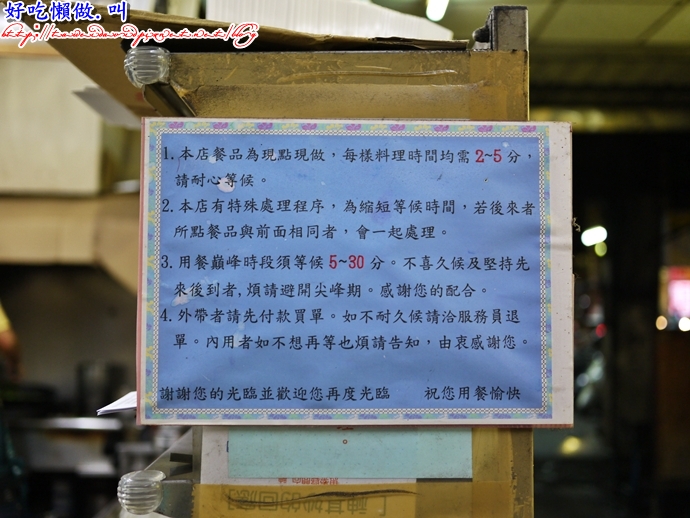 好吃懶做.叫
1.本店餐品為現點現做，每樣料理時間均需 2~5 分，
請耐心等候。
2.本店有特殊處理程序，為縮短等候時間，若後來者
所點餐品與前面相同者，會一起處理。
3.用餐巔峰時段須等候 5~30 分。不喜久候及堅持先
來後到者,煩請避開尖峰期。感謝您的配合。
4.外帶者請先付款買單。如不耐久候請洽服務員退
單。內用者如不想再等也煩請告知，由衷感謝您。
謝謝您的光臨並歡迎您再度光臨 祝您用餐愉快